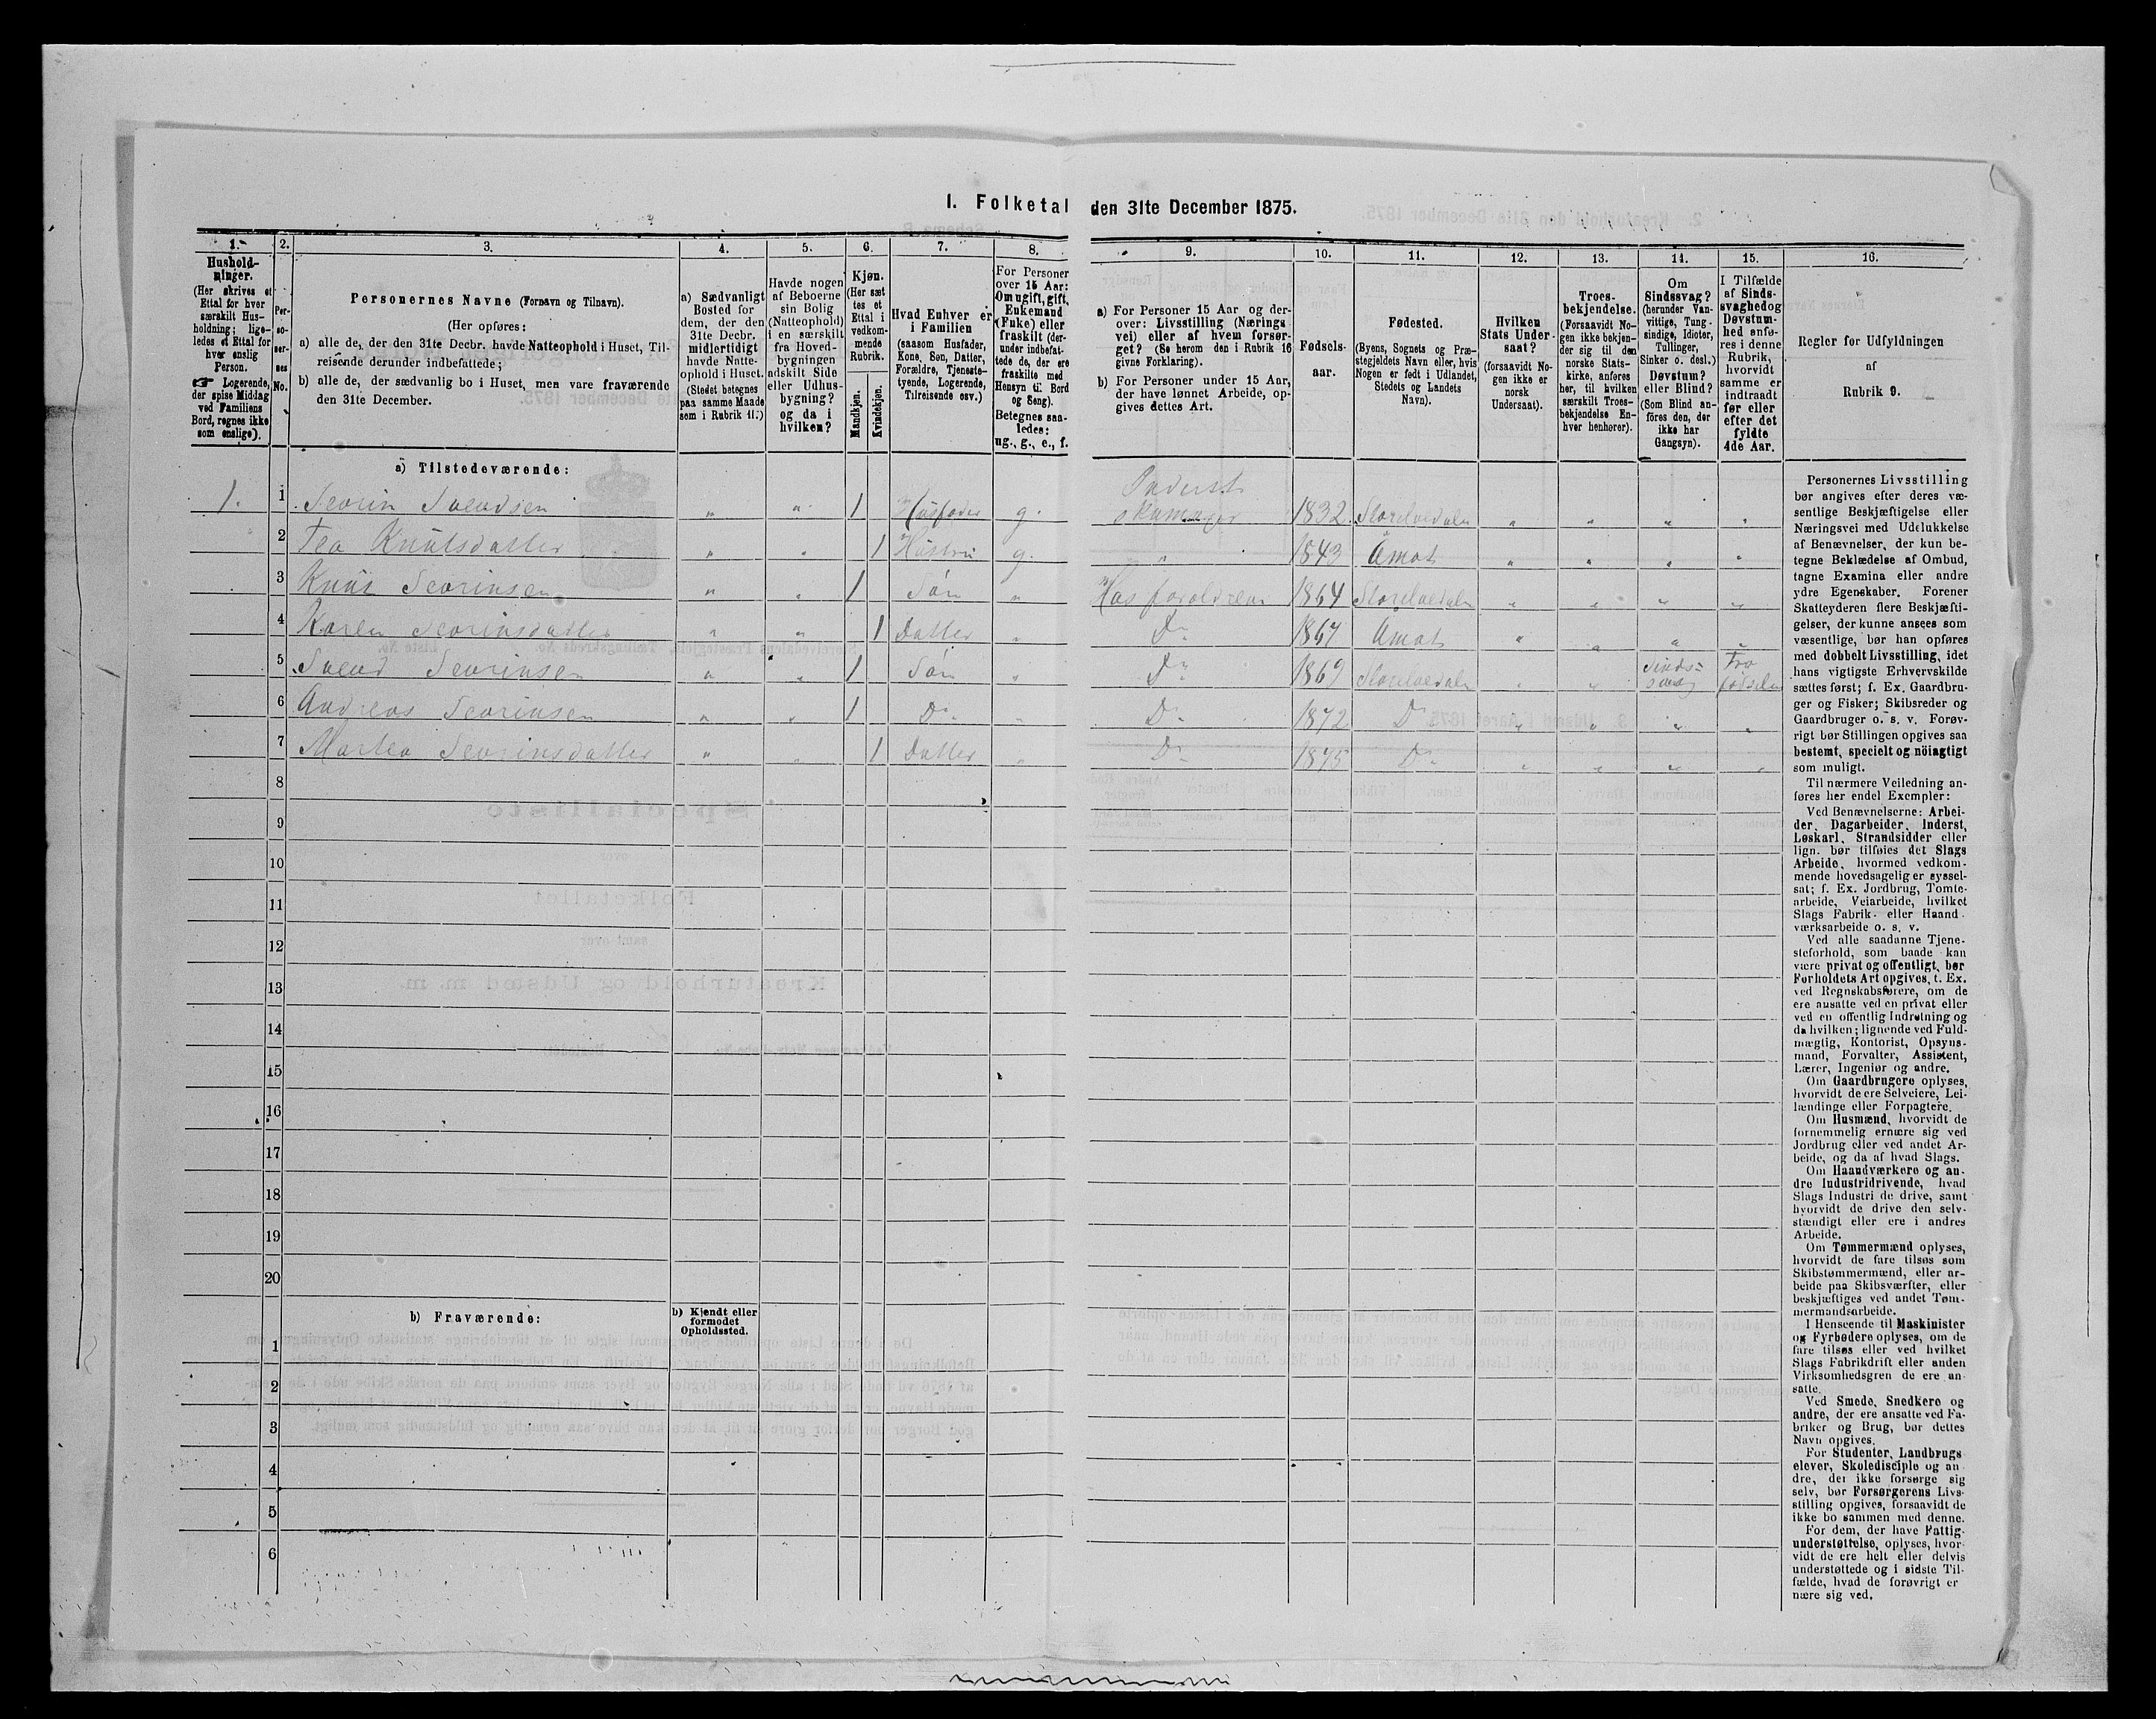 I. Folketal den 31te December 1875.
1.
Hushold-
ninger.
(Her skrives et
Ettal for hver
særskilt Hus-
holdning; lige-
ledes et Ettal for
hver enslig
Person.
☞ Logerende,
der spise Middag
ved Familiens
Bord, regnes ikke
som enslige).
2.
Per-
so-
ner-
nes
No.
3.
Personernes Navne (Fornavn og Tilnavn).
(Her opføres:
a) alle de, der den 31te Decbr. havde Natteophold i Huset, Til-
reisende derunder indbefattede;
b) alle de, der sædvanlig bo i Huset, men vare fraværende
den 31te December.
4.
a) Sædvanligt
Bosted for
dem, der den
31te Decbr.
midlertidigt
havde Natte-
ophold i Huset.
(Stedet betegnes
paa samme Maade
som i Rubrik 11.)
5.
Havde nogen
af Beboerne
sin Bolig
(Natteophold)
i en særskilt
fra Hoved-
bygningen
adskilt Side
eller Udhus-
bygning?
og da i
hvilken?
6.
Kjøn.
(Her sæt
tes et
Ettal i
vedkom-
mende
Rubrik.
Mandkjøn.
Kvindekjøn.
7.
Hvad Enhver er
i Familien
(saasom Husfader,
Kone, Søn, Datter,
Forældre, Tjeneste-
tyende, Logerende,
Tilreisende osv.)
8.
For Personer
over 15 Aar:
Om ugift, gift,
Enkemand
(Enke) eller
fraskilt (der-
under indbefat-
tede de, der ere
fraskilte med
Hensyn til Bord
og Seng).
Betegnes saa-
ledes:
ug., g., e., f.
9.
a) For Personer 15 Aar og der-
over: Livsstilling (Nærings
vei) eller af hvem forsør-
get? (Se herom den i Rubrik 16
givne Forklaring).
b) For Personer under 15 Aar,
der have lønnet Arbeide, op-
gives dettes Art.
10.
Fødsels-
aar.
11.
Fødested.
(Byens, Sognets og Præ-
stegjeldets Navn eller, hvis
Nogen er født i Udlandet,
Stedets og Landets
Navn).
12.
Hvilken
Stats Under-
saat?
(forsaavidt No-
gen ikke er
norsk
Undersaat).
13.
Troes-
bekjendelse.
(Forsaavidt No-
gen ikke bekjen-
der sig til den
norske Stats-
kirke, anføres
her, til hvilken
særskilt Troes-
bekjendelse En-
hver henhører).
14.
Om
Sindssvag?
(herunder Van-
vittige, Tung-
sindige, Idioter,
Tullinger,
Sinker o. desl.)
Døvstum?
eller Blind?
(Som Blind an-
føres den, der
ikke har
Gangsyn).
15.
I Tilfælde
af Sinds-
svaghed og
Døvstum-
hed anfø-
res i denne
Rubrik,
hvorvidt
samme er
indtraadt
før eller
efter det
fyldte
4de Aar.
16.
Regler for Udfyldningen
af
Rubrik 9.
a) Tilstedeværende:
1. 1 Sevrin Svendsen " " 1 Husfader g. Inderst Skomager 1832 Storelvedalen " " " "
2 Tea Knutsdatter " " 1 Hustru g. " 1843 Åmot " " " "
3 Knut Sevrinsen " " 1 Søn " Hos foreldrene 1864 Storelvedalen " " " "
4 Karen Sevrinsdatter " " 1 Datter " Do 1867 Åmot " " " "
5 Svend Sevrinsen " " 1 Søn " Do 1869 Storelvedalen " " Sinds-svag Fra fødselen
6 Andreas Sevrinsen " " 1 Do " Do 1872 Do " " " "
7 Martea Sevrinsdatter " " 1 Datter " Do 1875 Do " " " "
8
9
10
11
12
13
14
15
16
17
18
19
20
b) Fraværende:
b) Kjendt eller
formodet
Opholdssted.
1
2
3
4
5
6
Personernes Livsstilling
bør angives efter deres væ-
sentlige Beskjæftigelse eller
Næringsvei med Udelukkelse
af Benævnelser, der kun be-
tegne Beklædelse af Ombud,
tagne Examina eller andre
ydre Egenskaber. Forener
Skatteyderen flere Beskjæfti-
gelser, der kunne ansees som
væsentlige, bør han opføres
med dobbelt Livsstilling, idet
hans vigtigste Erhvervskilde
sættes først; f. Ex. Gaardbru-
ger og Fisker; Skibsreder og
Gaardbruger o. s. v. Forøv-
rigt bør Stillingen opgives saa
bestemt, specielt og nöiagtigt
som muligt.
Til nærmere Veiledning an-
føres her endel Exempler:
Ved Benævnelserne: Arbei-
der, Dagarbeider, Inderst,
Løskarl, Strandsidder eller
lign. bør tilføies det Slags
Arbeide, hvormed vedkom-
mende hovedsagelig er syssel-
sat; f. Ex. Jordbrug, Tomte-
arbeide, Veiarbeide, hvilket
Slags Fabrik- eller Haand-
værksarbeide o. s. v.
Ved alle saadanne Tjene-
steforhold, som baade kan
være privat og offentligt, bør
Forholdets Art opgives, t. Ex.
ved Regnskabsførere, om de
ere ansatte ved en privat eller
ved en offentlig Indretning og
da hvilken; lignende ved Fuld-
mægtig, Kontorist, Opsyns-
mand, Forvalter, Assistent,
Lærer, Ingeniør og andre.
Om Gaardbrugere oplyses,
hvorvidt de ere Selveiere, Lei-
lændinge eller Forpagtere.
Om Husmænd, hvorvidt de
fornemmelig ernære sig ved
Jordbrug eller ved andet Ar-
beide, og da af hvad Slags.
Om Haandværkere og an-
dre Industridrivende, hvad
Slags Industri de drive, samt
hvorvidt de drive den selv-
stændigt eller ere i andres
Arbeide.
Om Tømmermænd oplyses,
hvorvidt de fare tilsøs som
Skibstømmermænd, eller ar-
beide paa Skibsværfter, eller
beskjæftiges ved andet Tøm-
mermandsarbeide.
I Henseende til Maskinister
og Fyrbødere oplyses, om de
fare tilsøs eller ved hvilket
Slags Fabrikdrift eller anden
Virksomhedsgren de ere an-
satte.
Ved Smede, Snedkere og
andre, der ere ansatte ved Fa-
briker og Brug, bør dettes
Navn opgives.
For Studenter, Landbrugs
elever, Skoledisciple og an-
dre, der ikke forsørge sig
selv, bør Forsørgerens Livs-
stilling opgives, forsaavidt de
ikke bo sammen med denne.
For dem, der have Fattig-
understøttelse, oplyses, hvor-
vidt de ere helt eller delvis
understøttede og i sidste Til-
fælde, hvad de forøvrigt er
nære sig ved.